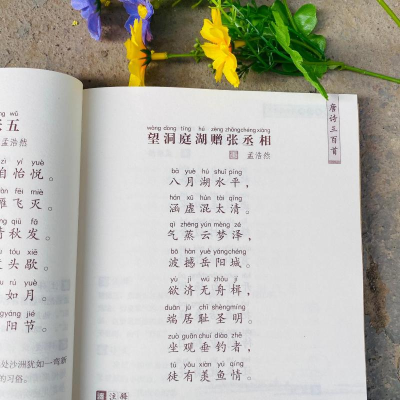 wǔ
五
孟浩然
yí yuè
怡悦。
fēi miè
飞灭。
qiū fā
秋发。
tóu xiē
头歇。
rú yuè
如月。
yáng jié
阳节。
处沙洲犹如一弯新
的习俗。
唐诗三百首
wàng dòng tíng hú zèng zhāng chéng xiàng
望洞庭湖赠张丞相
唐 孟浩然
bā yuè hú shuǐ píng
八月湖水平，
hán xū hùn tài qīng
涵虚混太清。
qì zhēng yún mèng zé
气蒸云梦泽，
bō hàn yuè yáng chéng
波撼岳阳城。
yù jì wú zhōu jí
欲济无舟楫，
duān jū chǐ shèng míng
端居耻圣明。
zuò guān chuí diào zhě
坐观垂钓者，
tú yǒu xiàn yú qíng
徒有羡鱼情。
注释